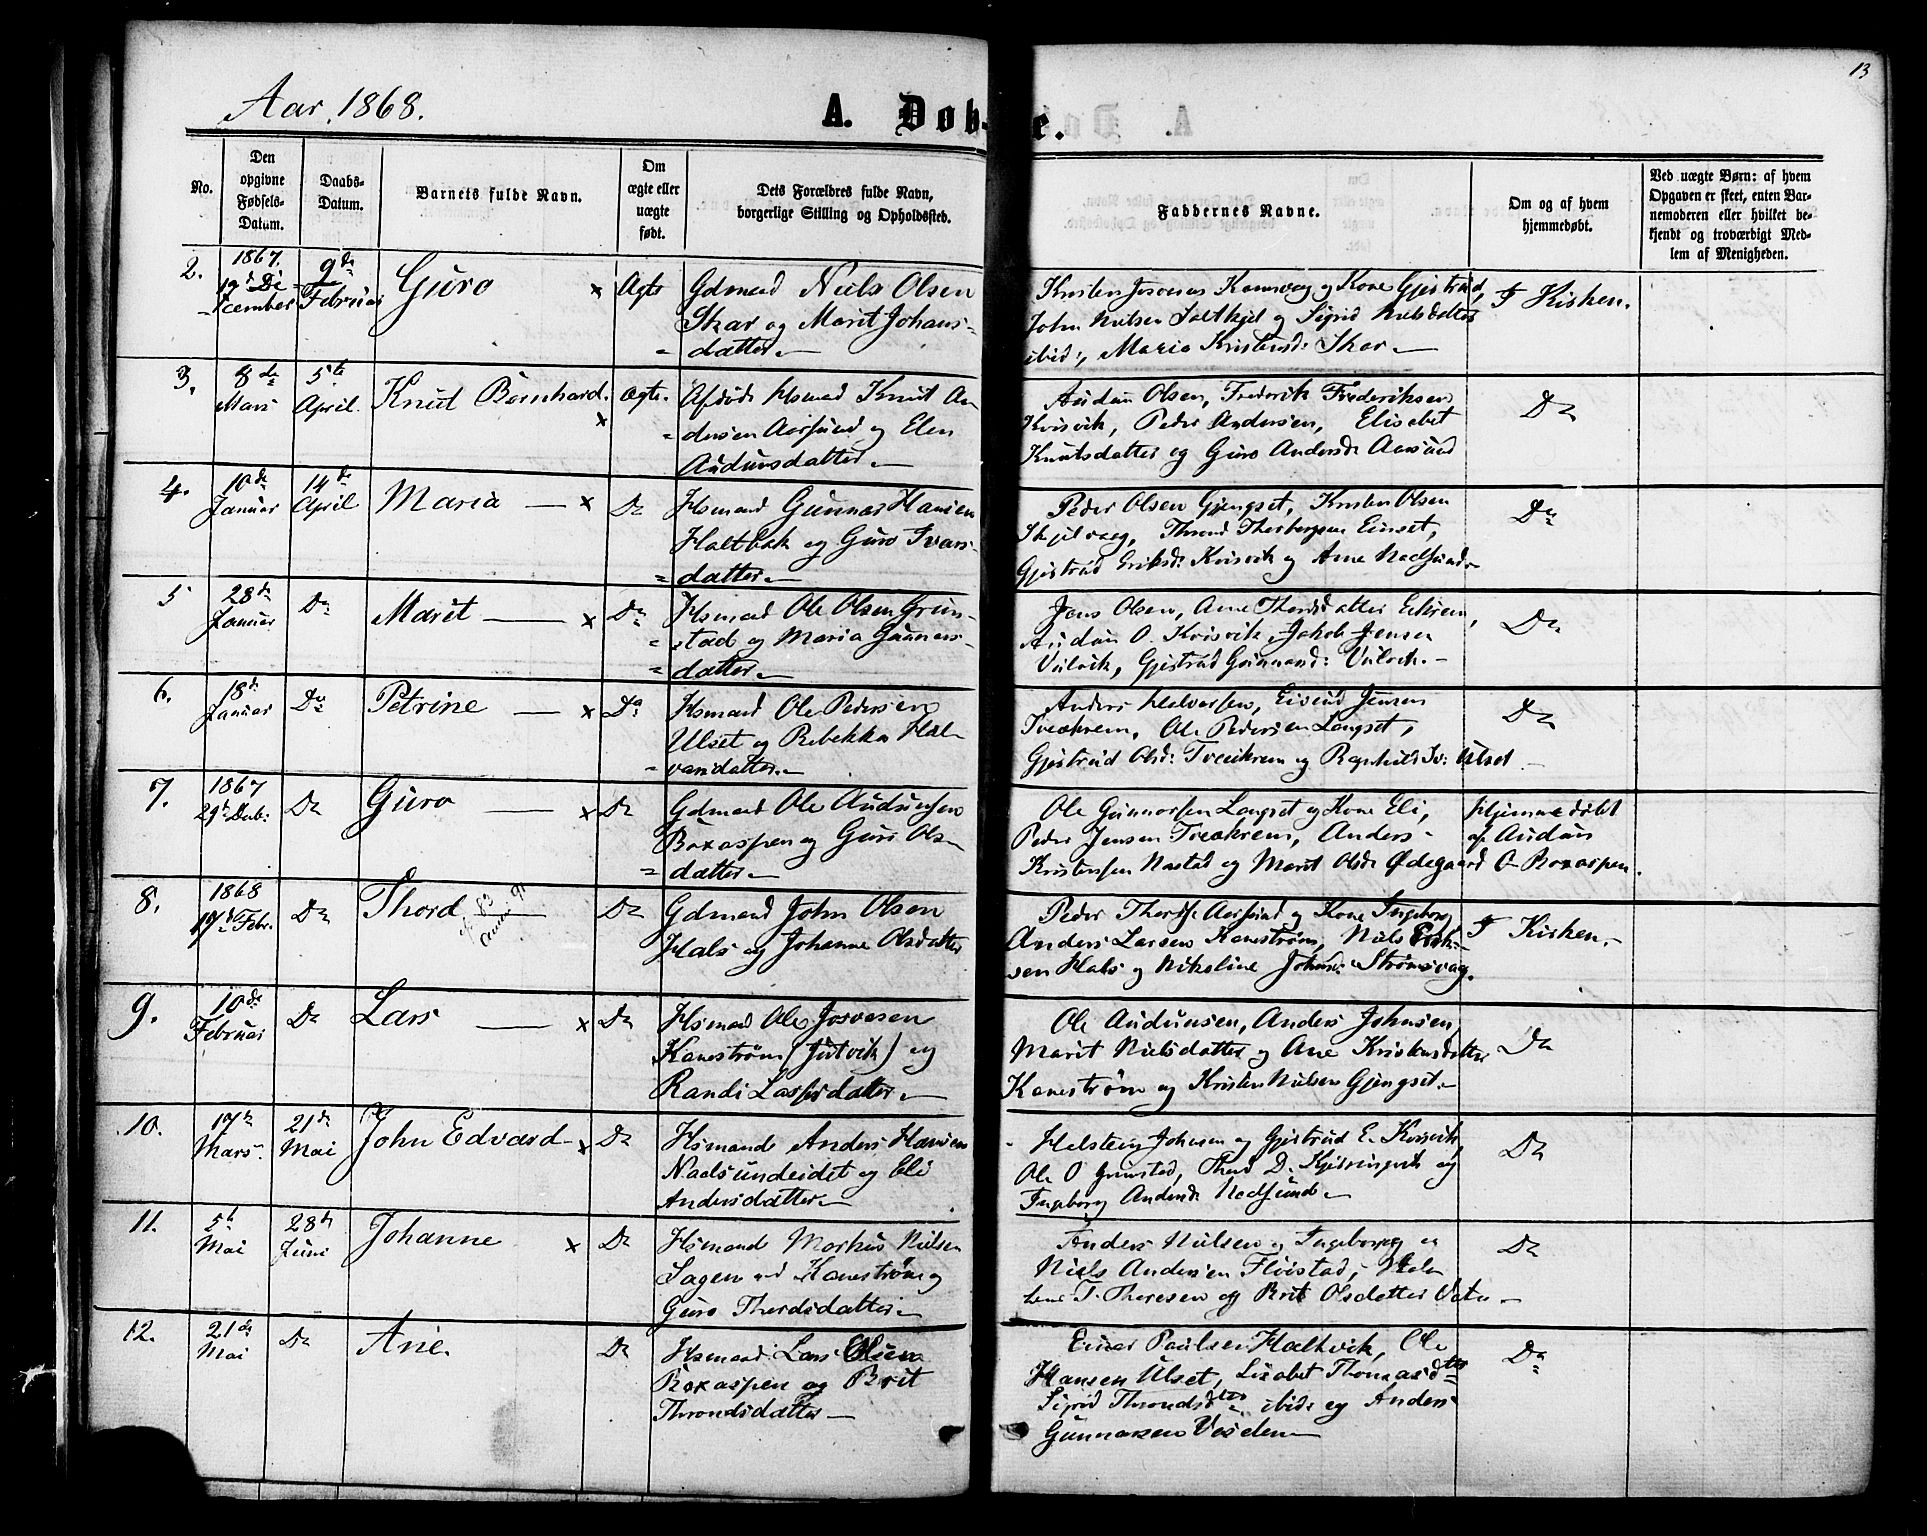 13
Aar. 1868.
A. Døb-
e.
No.
Den opgivne Fødsels-Datum.
Daabs-Datum.
Barnets fulde Navn.
Om ægte eller uægte født.
Dets Forældres fulde Navn, borgerlige Stilling og Opholdssted.
Faddernes Navne.
Om og af hvem hjemmedøbt.
Ved uægte Børn: af hvem Opgaven er skeet, enten Barnemoderen eller hvilket bekjendt og troværdigt Medlem af Menigheden.
2. 1867. 19de December 9de Februar Guro × Ægte
Gdmand Niels Olsen
Skar og Marit Johans-
datter
Kristen Kone Gjertrud,
John Nielsen og Sigrid Nielsdatter
ibid:, Maria Skar
I Kirken.
3. 8de Mars 5te April. Knut Bernhard. × Ægte.
Afdøde Hsmand Knut An-
dersen Aarsund og Elen
Audunsdatter
Audun Olsen, Frederik Frederiksen
Kvisvik, Peder Andersen, Elisabet
Knutsdatter og Guro Andersd: Aarsund
Do
4. 10de Januar 14de April Maria × Do
Hsmand Gunnar Hansen
Haltbak og Guro Ivars-
datter
Peder Olsen Gjengset, Kristen Olsen
Thorbergsen Einset,
Gjertrud Eriksd: Kvisvik og Ane
Do
5 28de Januar Do Marit × Do
Hsmand Ole Olsen Grim-
stad og Maria Gunnars-
datter
Jens Olsen, Ane Thordsdatter
Audun O. Kvisvik, Jakob Jensen
Gjertrud
Do
6. 18de Januar Do Petrine × Do
Hsmand Ole Pedersen
Ulset og Rebekka Hal-
vorsdatter
Anders Halvorsen, Eivind Jensen
Tveekrem, Ole Pedersen Langset,
Gjertrud Olsd: Tveekrem og Ragnhild Iv: Ulset
Do
7. 1867 29de Do Guro × Do
Gdmand Ole Audunsen
Boxaspen og Guro Ols-
datter
Ole Gunnarsen Langset og Kone Eli,
Peder Jensen Tveekrem, Anders
Kristensen og Marit Olsd: Ødegaard
Hjemmedøbt
af Audun
O. Boxaspen.
8. 1868 17de Febr. Do Thord Do
Gdmand John Olsen
Hals og Johanne Olsdatter
Peder Aarsund og Kone Ingeborg
Anders Larsen Kanestrøm, Niels Erik-
sen Hals og Nikoline Strømsvag.
I Kirken
9. 10de Februar Do Lars × Do
Hsmand Ole Josvasen
Kanestrøm (Jutvik) og
Randi Larsdatter
Ole Audunsen, Anders Johnsen,
Marit Nielsdatter og Ane Kristensdatter
Kanestrøm og Kristen Nielsen Gjengset
Do
10. 17de Mars 21de Mai John Edvard × Do
Hsmand Anders Hansen
Naalsundeidet og Eli
Andersdatter
Johnsen og Gjertrud E. Kvisvik,
Ole O Grimstad, Thord D. og
Ingeborg Andersd:
Do
11. 5te Mai 28de Juni Johanne × Do
Hsmand Markus Nielsen
Sagen ved Kanestrøm og
Guro Thordsdatter
Anders Nielsen og Ingeborg og
Niels Andersen Fløistad,
og Brit Olsdatter
Do
12. 21de Mai Do Ane. Do
Hsmand Lars Olsen
Boxaspen og Brit
Throndsdatter
Einar Paulsen Haltvik, Ole
Hansen Ulset, Lisabet Thomasdtr
Sigrid Throndsdtr ibid: og Anders
Gunnarsen
Do